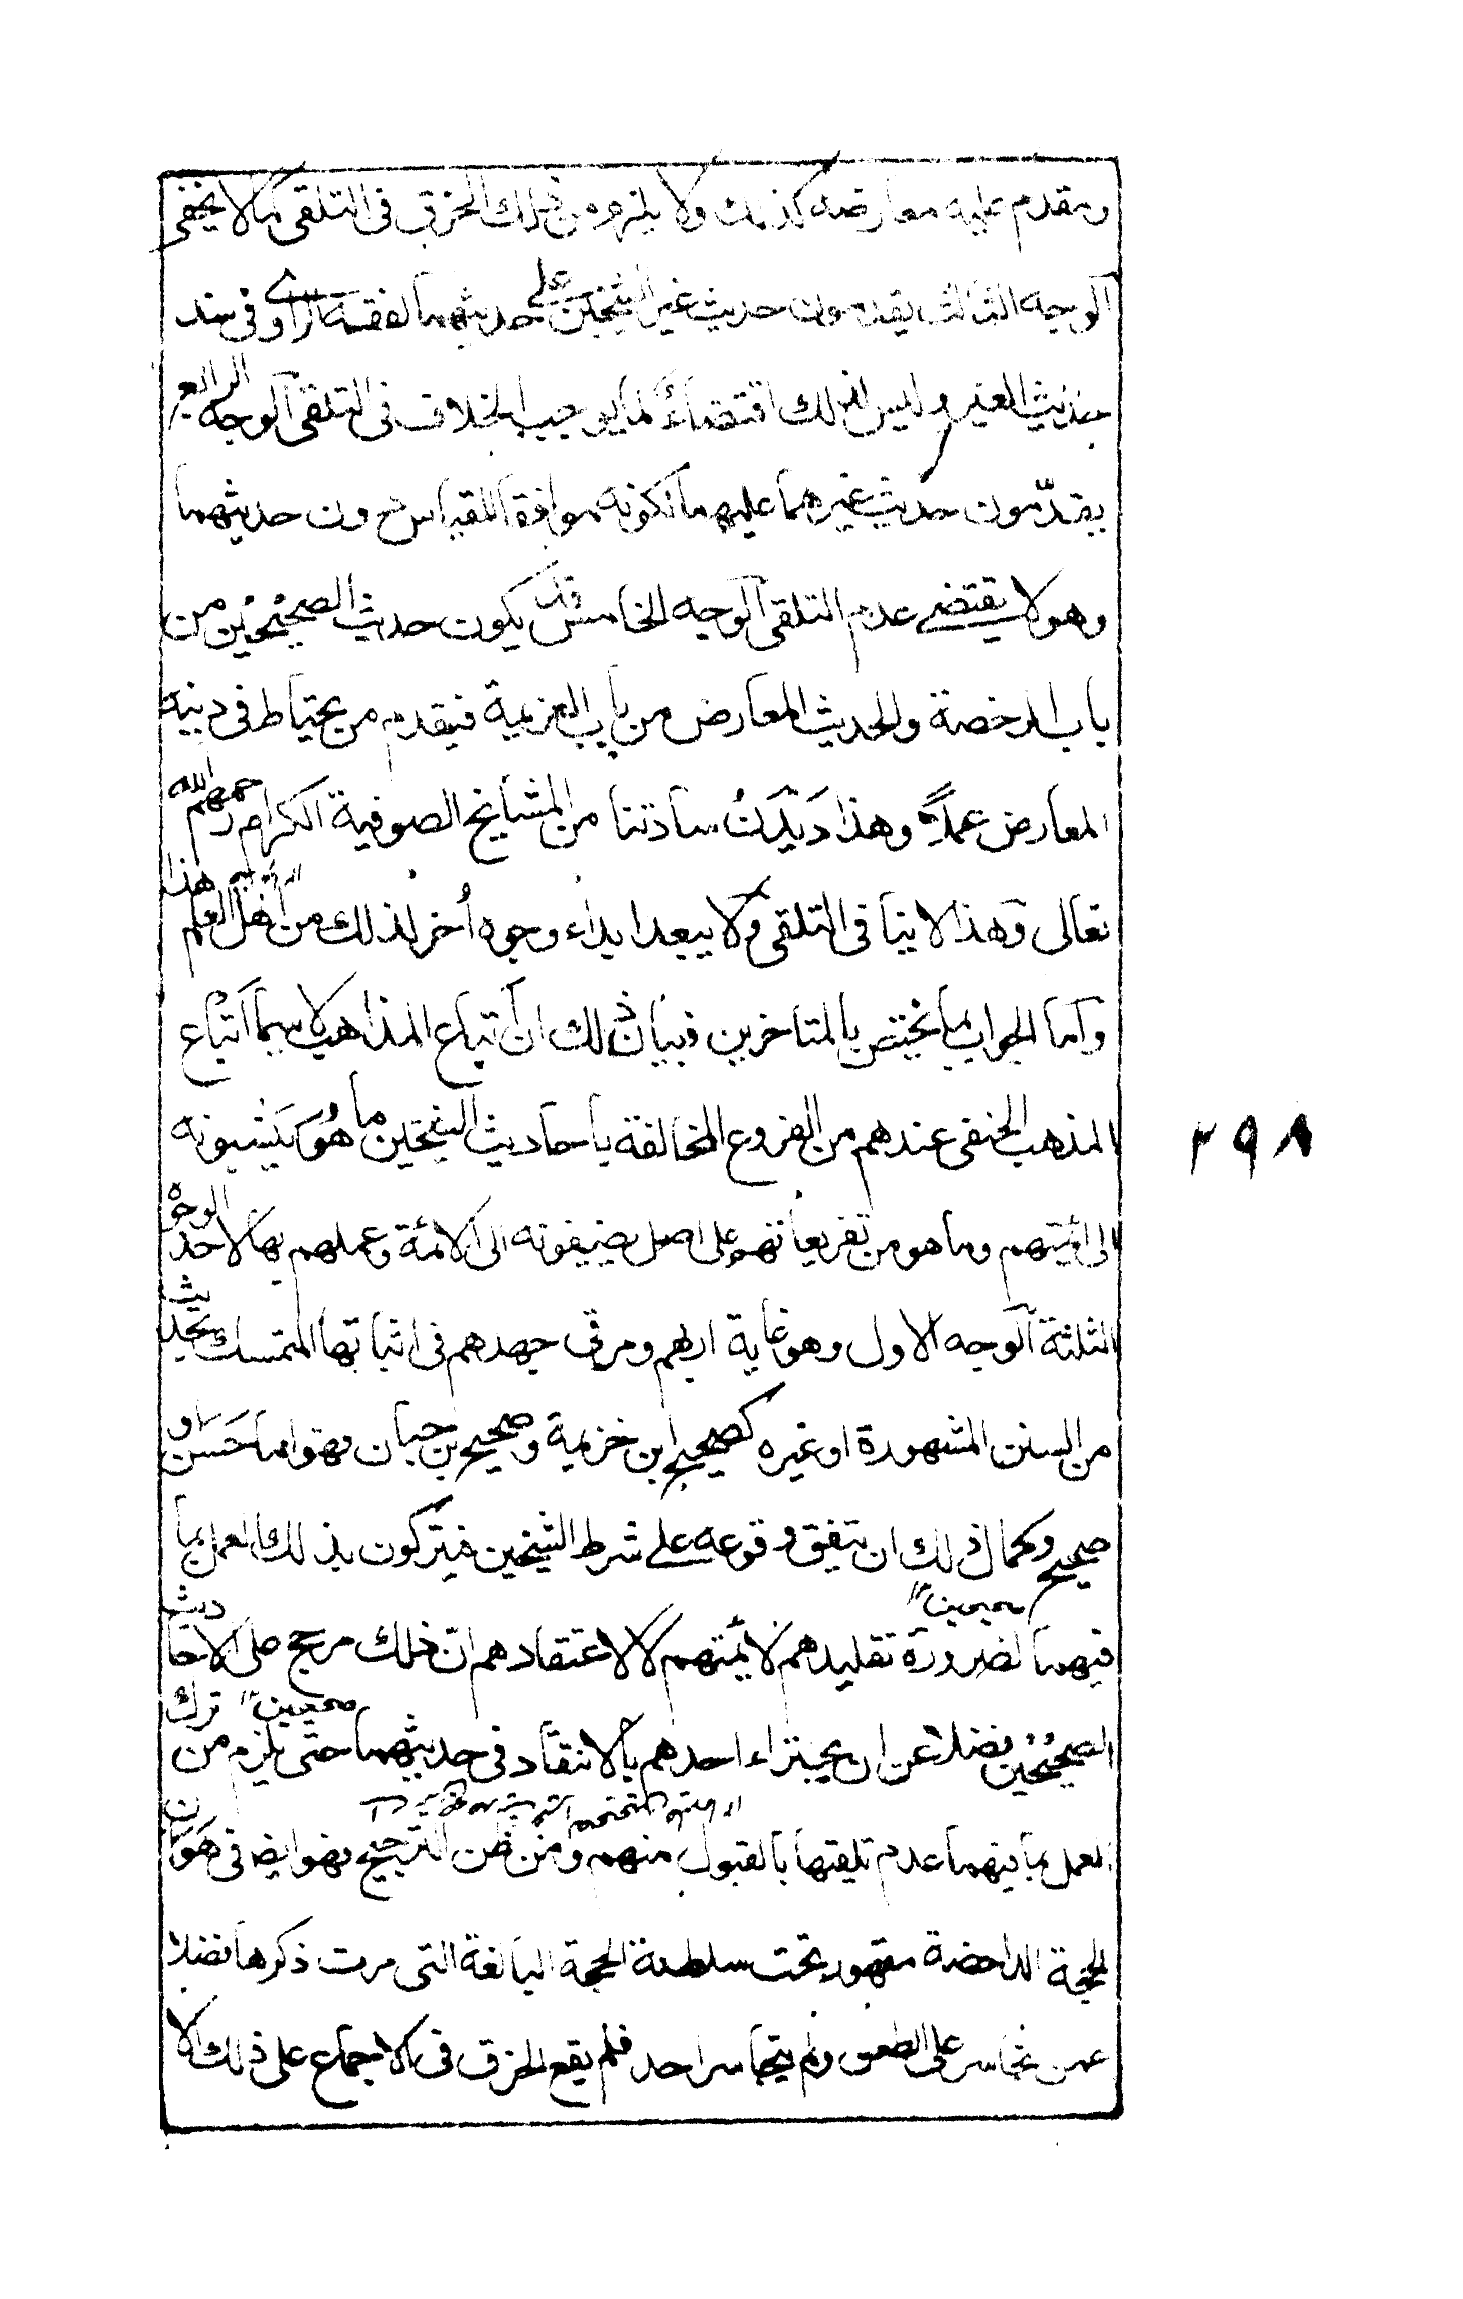 ومقدم عليه معارضه كذلك ولا يلزم من ذلك الخرق فى التلقى كما لا يخفى
آلوجه الثالث يقدمون حديث غير الشيخين على حديثهما لفقه الراوى فى سند
حديث الغير وليس لذلك اقتضاءً لما يوجب الخلاف فى التلقى آلوجه الرابع
يقدّمون حديث غيرهما عليهما لكونه موافقا للقياس دون حديثهما
وهو لا يقتضى عدم التلقى آلوجه الخامس قد يكون حديث الصحيحين من
باب الرخصة والحديث المعارض من باب العزيمة فيقدم من يحتاط فى دينه
المعارض عملاً وهذا دَيْدَنُ ساداتنا من المشايخ الصوفية الكرام رحمهم الله
تعالى وهذا لا ينافى التلقى ولا يبعد ابداء وجوه اُخر لذلك من اهل العلم هذا
وآما الجواب بما يختص بالمتاخرين فبيان ذلك ان أتباع المذاهب لا سيما اَتْباع
المذهب الحنفى عندهم من الفروع المخالفة باحاديث الشيخين ما هُوَ يَنْسبونه
الى ائمتهم وما هو من تفريعاتهم على اصل يضيفونه الى الائمة وعملهم بها لاحد الوجوه
الثلثة آلوجه الاول وهو غاية اربهم ومرقى جهدهم فى اثباتها المتمسك بحديث
من السنن المشهورة او غيره كصحيح ابن خزيمة وصحيح بن حبان فهو اما حَسَن او
صحيح وكمال ذلك ان يتفق وقوعه على شرط الشيخين فيتركون بذلك العمل بما
فيهما لضرورة تقليدهم لائمتهم لا لاعتقادهم انّ ذلك مرجح على الاحاديث
الصحيحين فضلا عن ان يجتراء احدهم بالانتقاد فى حديثهما حتى يلزم من ترك
العمل بما فيهما عدم تلقيتها بالقبول منهم ومن ظن الترجيح فهو ايضا فى هَوَان
الحجة الداحضة مقهور تحت سلطنة الحجة البالغة التى مرت ذكرها فضلا
عمن تجاسر على الطعن ولم يتجاسر احد فلم يقع الخرق فى الاجماع على ذلك الا
٢٩٨